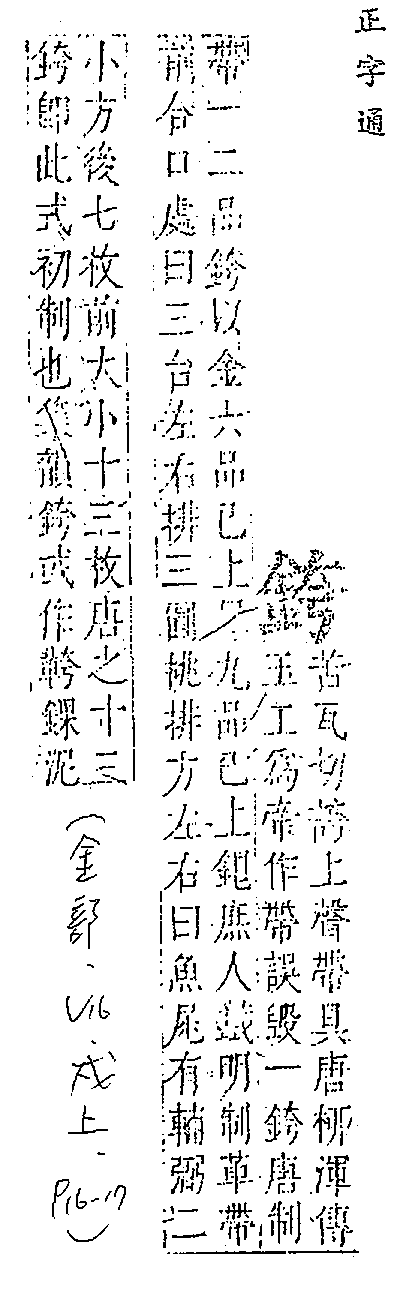 正字通
銙 苦瓦切誇上聲帶具唐柳渾傳
玉工爲帝作帶誤毀一銙唐制
帶一二品銙以金六品已上犀九品已上銀庶人鐵明制革帶
前合口處曰三台左右排三圓桃排方左右曰魚尾有輔弼二
小方後七枚前大小十三枚唐之十三
銙卽此式初制也集韻銙或作錁泥
(金部、V16、戌上、P16-17)